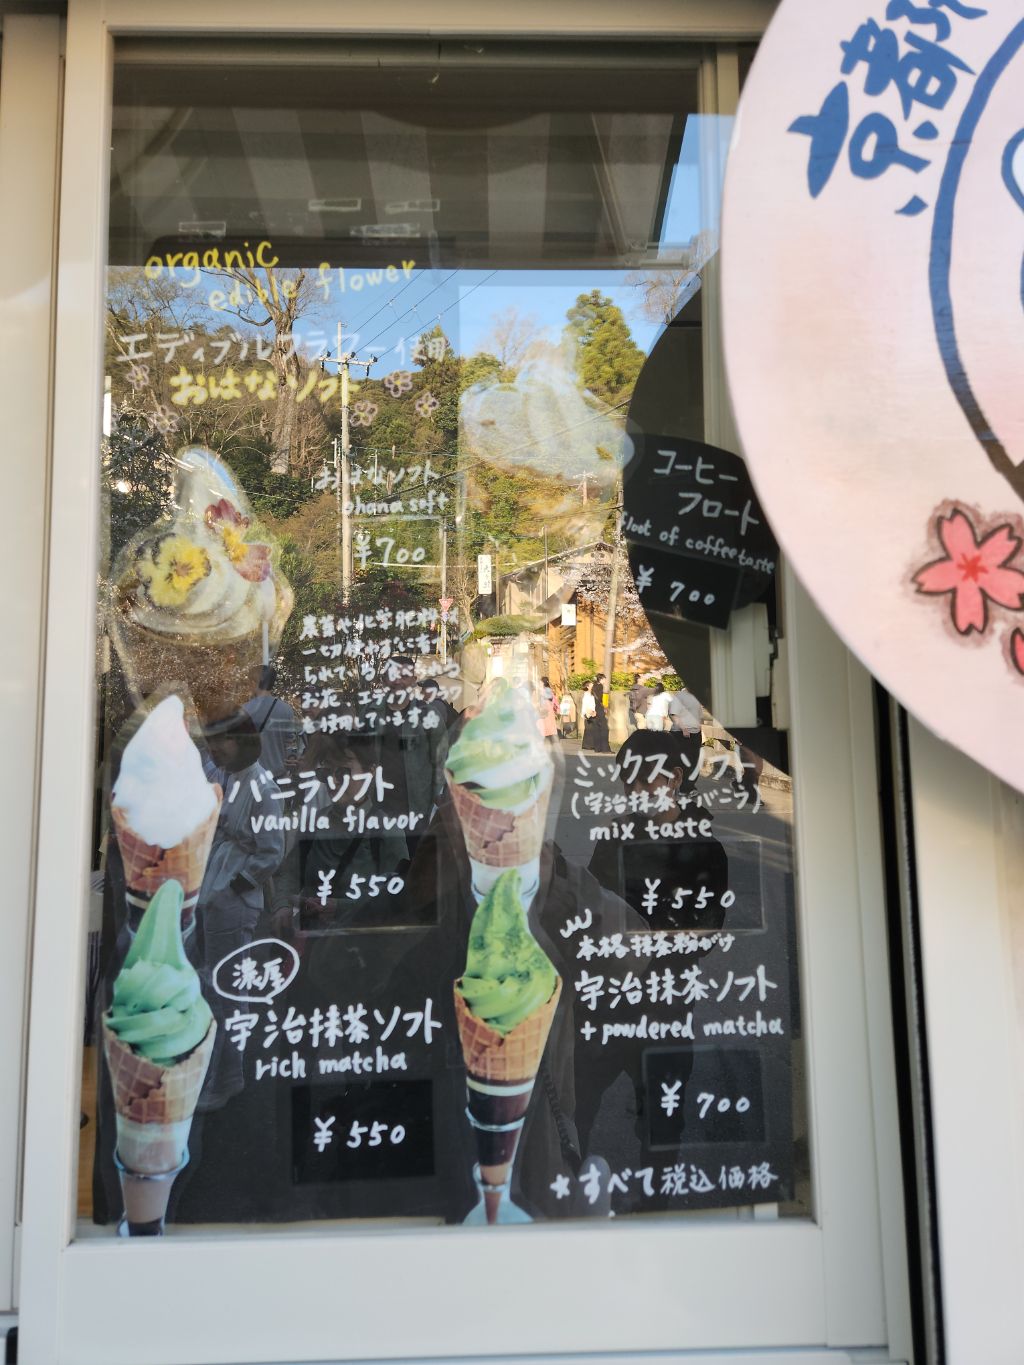 京都
organic
edible flower
エディブルフラワー使用
おはなソフト
おはなソフト
ohana soft
¥700
コーヒー
フロート
float of coffee taste
¥700
農薬や化学肥料を
一切使わずに育て
られている
お花、エディブルフラワー
を使用しています
バニラソフト
vanilla flavor
¥550
ミックスソフト
(宇治抹茶+バニラ)
mix taste
¥550
濃厚
宇治抹茶ソフト
rich matcha
¥550
本格抹茶粉がけ
宇治抹茶ソフト
+powdered matcha
¥700
★すべて税込価格